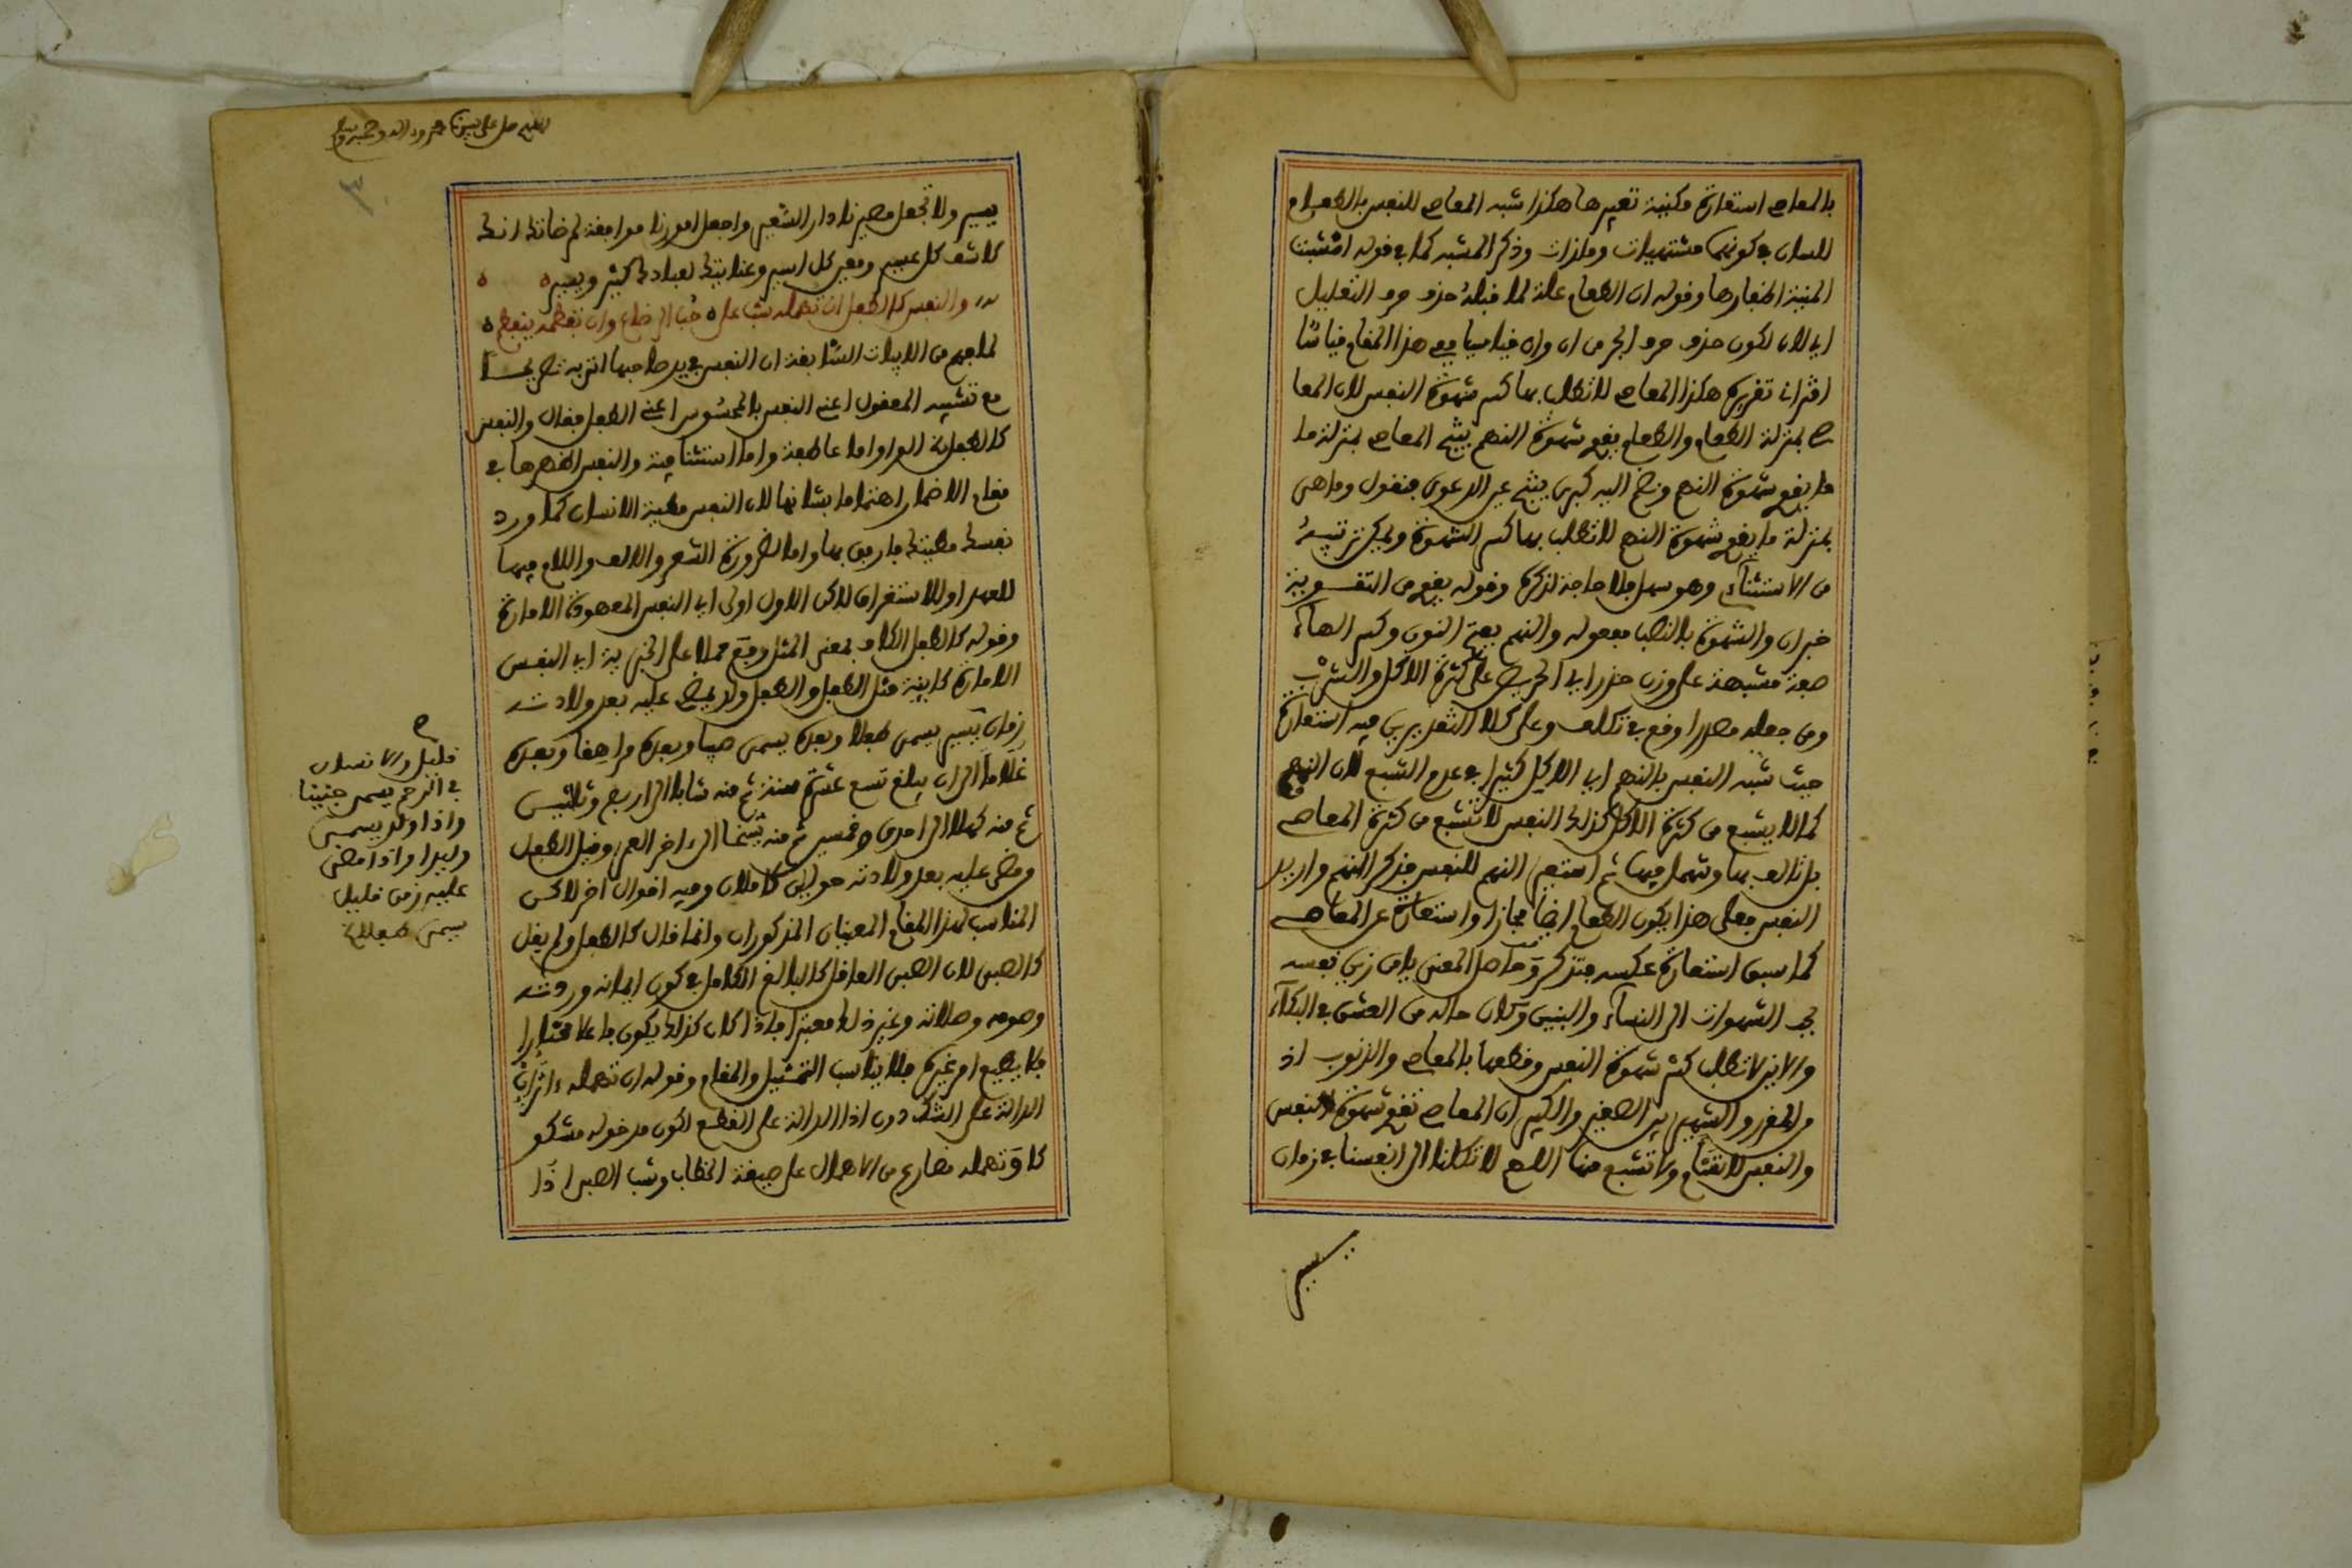 بالمعاصي استعارة مكنية تقريرها هكذا شبه المعاصي للنفس بالطعام
للانسان في كونهما مشتهيات وملذات وذكر المشبه كما في قوله انشبت
المنية اظفارها وقوله ان الطعام علة لما قبله حذف حرف التعليل
اي لان لكون حذف حرف الجر من ان وان قياسيا ففي هذا المقام قياسا
اقترانيا تقريره هكذا المعاصي لا تطلب بها كسر شهوة النفس لان المعا
صي بمنزلة الطعام والطعام يقوي شهوة النهم ينتج المعاصي بمنزلة ما
ما يقوي شهوة النهم وضم اليه كبرى ينتج عين الدعوى فنقول وما هي
بمنزلة ما يقوي شهوة النهم لا تطلب بها كسر الشهوة ويمكن ترتيبه
من الاستثنائي وهو سهل فلا حاجة لذكره وقوله يقوي من التقوية
خبر ان والشهوة بالنصب مفعوله والنهم بفتح النون وكسر الهاء
صفة مشبهة على وزن حذر اي الحريص على كثرة الاكل والشرب
ومن جعله مصدرا وقع في تكلف وعلى كلا التقديرين فيه استعارة
حيث شبه النفس بالنهم اي الاكل كثيرا في عدم الشبع لان النهم
كما لا يشبع من كثرة الاكل كذلك النفس لا تشبع من كثرة المعاصي
بل تالف بها وتنهمل فيها ثم استعير النهم للنفس فذكر النهم واريد
النفس فعلى هذا يكون الطعام ايضا مجازا واستعارة عن المعاصي
كما سبق استعارة عكسه فتذكر وحاصل المعنى يا من زين نفسه
حب الشهوات الى النساء والبنين وكان حاله من العشق في البكاء
والانين لا تطلب كسر شهوة النفس وقطعها بالمعاصي والذنوب اذ
والمقرر الشهير بين الصغير والكبير ان المعاصي تقوي شهوة النفس
والنفس لا تقنع ولا تشبع منها اللهم لا تكلنا الى انفسنا في زمان
يسير
اللهم صل على سيدنا محمد واله وصحبه وسلم
٣
يسير ولا تجعل مصيرنا دار السعير واجعل امورنا موافقة لمرضاتك انك
كاشف كل عسير ومعين كل اسير وعنايتك لعبادك كثير ويسير
والنفس كالطفل ان تهمله شب على حب الرضاع وان تفطمه ينفطم
لما فهم من الابيات السابقة ان النفس في يد صاحبها اتى به تصريحا
مع تشبيه المعقول اعني النفس بالمحسوس اعني الطفل فقال والنفس
كالطفل الواو اما عاطفة واما استئنافية والنفس اظهرها في
مقام الاضمار اهتماما بشانها لان النفس مطية الانسان كما ورد
نفسك مطيتك فارفق بها واما لضرورة الشعر والالف واللام فيها
للعهد او للاستغراق لكن الاول اولى اي النفس المعهودة الامارة
وقوله كالطفل الكاف بمعنى المثل وقع محلا على الخبرية اي النفس
الامارة كاينة مثل الطفل والطفل ولد يمضي عليه بعد ولادته
زمان يسير يسمى طفلا وبعده يسمى صبيا وبعده مراهقا وبعده
غلاما الى ان يبلغ تسع عشرة سنة ثم منه شابا الى اربع وثلاثين
ثم منه كهلا الى احدى وخمسين ثم منه شيخا الى ءاخر العمر وقيل الطفل
ومضى عليه بعد ولادته حولين كاملان وفيه اقوال اخر لاكن
المناسب لهذا المقام المعنيان المذكوران وانما قال كالطفل ولم يقل
كالصبي لان الصبي العاقل كالبالغ الكامل في كون ايمانه وردته
وصومه وصلاته وغير ذلك معتبرا فاذا كان كذلك يكون فاعلا مختارا
فلا يطيع امر غيره فلا يناسب التمثيل والمقام وقوله ان تهمله
الدالة على الشك دون اذا الدالة على القطع لكون مدخوله مشكو
كا وتهمله مضارع من الاهمال على صيغة الخطاب وشب الصبي اذا
قليل والانسان
في الرحم يسمى جنينا
واذا ولد يسمى
وليدا واذا مضى
عليه زمن قليل
يسمى طفلا